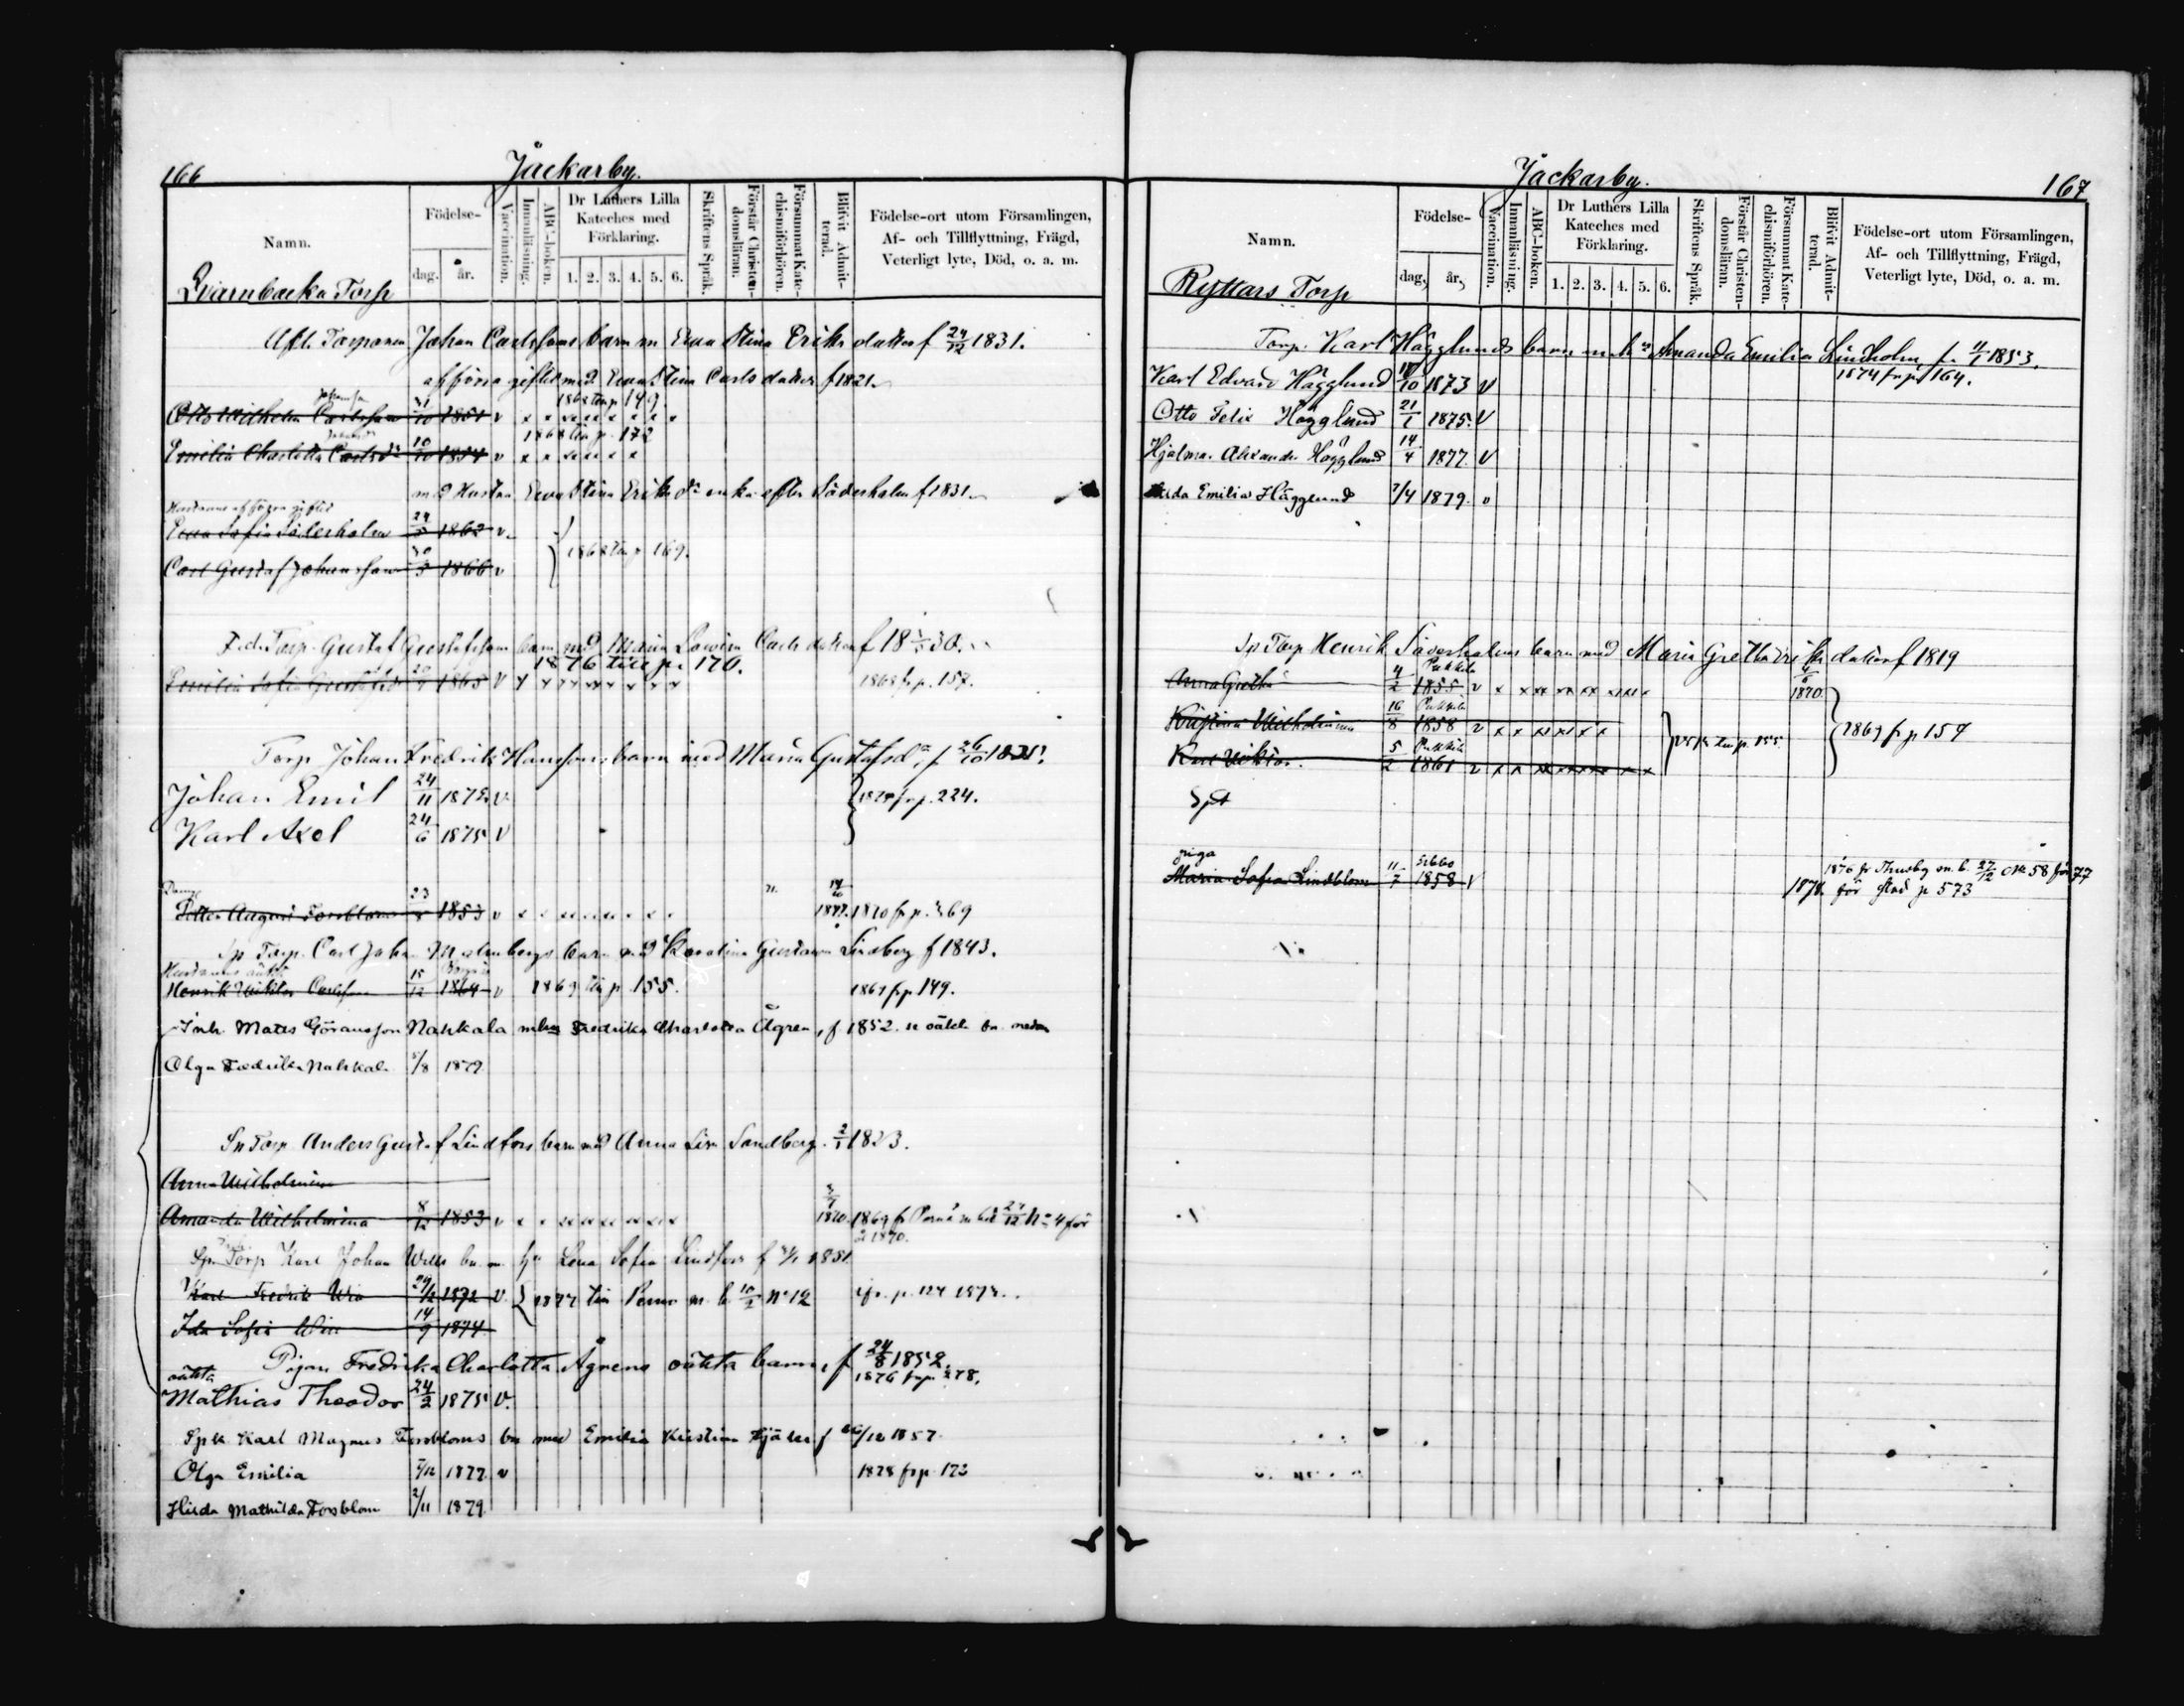 166
Jackarby.
Namn.
Födelse-
dag. år.
Vaccination.
Innanläsning.
ABC-boken.
Dr Luthers Lilla
Kateches med
Förklaring.
1. 2. 3. 4. 5. 6.
Skriftens Språk.
Förstår Christen-
domsläran.
Försummat Kate-
chismiförhören.
Blifvit Admit-
terad.
Födelse-ort utom Församlingen,
Af- och Tillflyttning, Frägd,
Veterligt lyte, Död, o. a. m.
Qvarnbacka Torp
Johan Carlssons barn m Eva Stina Eriks dotter f 24/12 1831.
af förra giftet med Eva Stina Carls dotter f 1821.
1868 till p 149
Otto Wilhelm Carlsson 31/10 1851 v x x xx x x x x x
1868 till p. 172
Emilia Charlotta Carlsdr 10/10 1854 v x x xx x x x
med Hustru Eva Stina Eriksdr enka efter Söderholm f 1831
Hustruns af förra giftet
Eva Sofia Söderholm 24/5 1862 v.
1868 till p 169.
Carl Gustaf Johansson 30/5 1866 v
Torp. Gustaf Gustafsson barn med Maria Lovisa Carls dotter f 18 30.
1876 till p. 170.
Emilia Sofia Gustafsdr 20 1865 v x x x x x x x x x 1868 fr p. 157.
Torp Johan Fredrik Hanssons barn med Maria Gustafsdr, f 26/10 1831.
Johan Emil 24/11 1872 v
fr p. 224.
Karl Axel 24/6 1875 v
Petter August Forsblom 23/8 1853 v x x x x x x x x 1870 fr p. 69
Sp Torp. Carl Johan Malmbergs barn med Karolina Gustava Lindberg f 1843.
Henrik Wiktor Carlsson 15/12 1864 v 1869 till p. 155. 1867 fr p 149.
Inh. Matts Göransson Nahkala m hu Fredrika Charlotta Ågren, f 1852. se oäkta bn nedan
Olga Fredrika Nahkala 5/8 1879
Sp Torp Anders Gustaf Lindfors barn med Anna Lisa Sandberg. 2/1 1823.
Anna Wilhelmina
Amanda Wilhelmina 8/12 1853 v x x xx x x x x x 1870 1869 fr Pernå m bet 27/12 No 4 för
1870.
Sp. Torp Karl Johan bn m hu Lena Sofia Lindfors f 1851
Karl Fredrik 29/2 1872 v. 1877 till Perno m. b. 10/2 No 12 fr. p. 124 1873.
Ida Sofia 14/9 1874
Pigan Fredrika Charlotta Ågrens oäkta barn, f 24/8 1852.
1876 fr p. 278.
oäkta
Mathias Theodor 24/2 1875 v.
Karl Magnus Forsbloms bn med Emilia Kristina f 26/12 1857
Olga Emilia 7/12 1877 v 1878 fr p. 173
Hilda Mathilda Forsblom 2/11 1879
Jackarby.
167
Namn.
Födelse-
dag, år,
Vaccination.
Innanläsning.
ABC-boken.
Dr Luthers Lilla
Kateches med
Förklaring.
1. 2. 3. 4. 5. 6.
Skriftens Språk.
Förstår Christen-
domsläran.
Försummat Kate-
chismiförhören.
Blifvit Admit-
terad.
Födelse-ort utom Församlingen,
Af- och Tillflyttning, Frägd,
Veterligt lyte, Död, o. a. m.
Ryttars Torp
Torp. Karl Hägglunds barn m. hu Amanda Emilia Lindholm f. 11/1 1853.
Karl Edvard Hägglund 10 1873 v 1874 fr p 164.
Otto Felix Hägglund 21/1 1875. v
Hjalmar Alexander Hägglund 14/4 1877. v
Hilda Emilia Hägglund 7/4 1879. v
Sp Torp Henrik Söderholms barn med Maria Gretha Eriks dotter f 1819
Pukkila
Anna Gretha 4/2 1855 v x x xx xx xx xxx x 1870
Pukkila
Kristina Wilhelmina 16/8 1858 v x x xx x x x 1869 fr p 154
Pukkila
Karl Wiktor. 5/2 1861 v x x xx xxxx x x
piga
Sibbo
Maria Sofia Lindblom 11/7 1858 v 1876 fr Thusby m. b. 27/12 No 58 för 77
1878 för Stad p 573